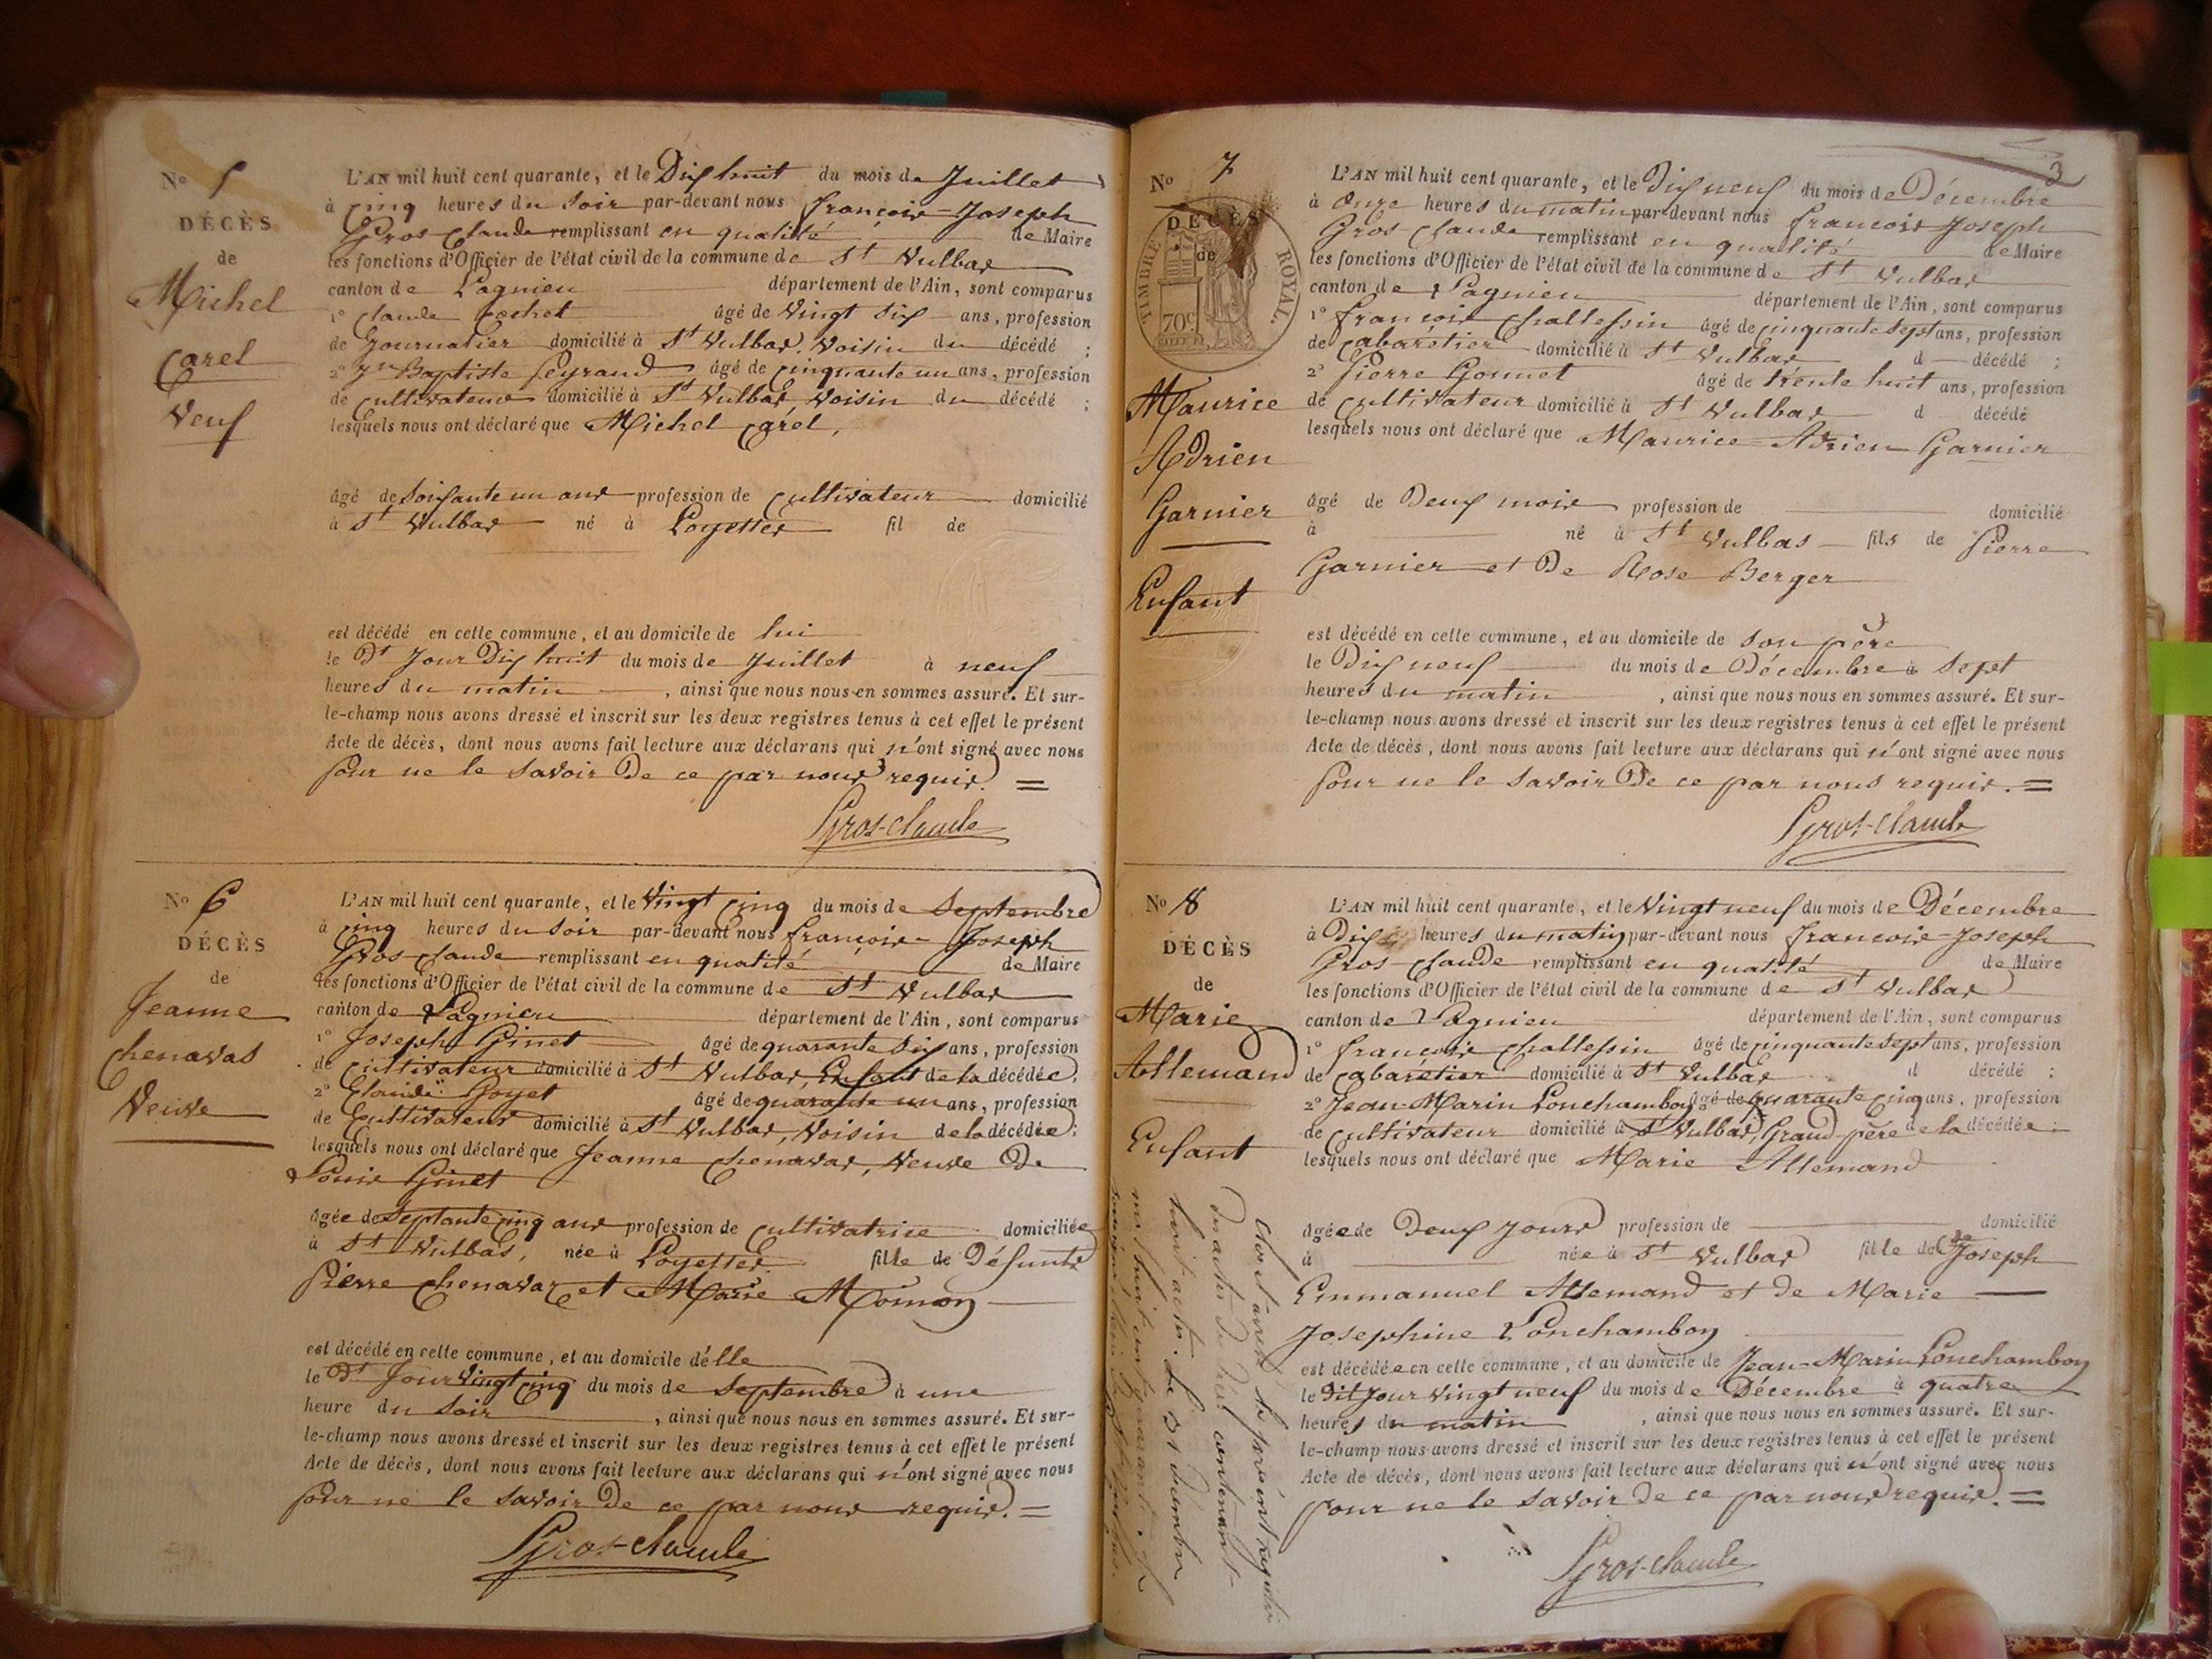 No 5
DÉCÈS
de
Michel
Carel
Veuf
L'AN mil huit cent quarante, et le Dix huit du mois de Juillet
à cinq heures du soir par-devant nous françois-Joseph
Gros-claude remplissant en qualité de Maire
les fonctions d'Officier de l'état civil de la commune de St Vulbas
canton de Lagnieu département de l'Ain, sont comparus
1o Claude Cochet âgé de vingt six ans, profession
de journalier domicilié à St Vulbas, voisin du décédé ;
2o Jn Baptiste Peyraud âgé de cinquante un ans, profession
de cultivateur domicilié à St Vulbas, voisin du décédé ;
lesquels nous ont déclaré que Michel Carel,
âgé de soixante un ans profession de cultivateur domicilié
à St Vulbas né à Loyettes fil de
est décédé en cette commune, et au domicile de lui
le Dt Jour Dix huit du mois de Juillet à neuf
heures du matin , ainsi que nous nous en sommes assuré. Et sur-
le-champ nous avons dressé et inscrit sur les deux registres tenus à cet effet le présent
Acte de décès, dont nous avons fait lecture aux déclarans qui n'ont signé avec nous
pour ne le savoir De ce par nous requis. =
Gros-claude
No 6
DÉCÈS
de
Jeanne
Chenavas
Veuve
L'AN mil huit cent quarante, et le vingt cinq du mois de Septembre
à cinq heures du soir par-devant nous françois-Joseph
Gros-claude remplissant en qualité de Maire
les fonctions d'Officier de l'état civil de la commune de St Vulbas
canton de Lagnieu département de l'Ain, sont comparus
1o Joseph Ginet âgé de quarante six ans, profession
de cultivateur domicilié à St Vulbas, Enfant de la décédée ;
2o Claude Goyet âgé de quarante un ans, profession
de Cultivateur domicilié à St Vulbas, voisin de la décédée ;
lesquels nous ont déclaré que Jeanne Chenavas, Veuve De
Louis Ginet
âgée de septante cinq ans profession de cultivatrice domiciliée
à St Vulbas, née à Loyettes fille de Défunts
Pierre Chenavaz et Marie Moinon
est décédé en cette commune, et au domicile d'elle
le Dt Jour vingt cinq du mois de Septembre à une
heure du soir , ainsi que nous nous en sommes assuré. Et sur-
le-champ nous avons dressé et inscrit sur les deux registres tenus à cet effet le présent
Acte de décès, dont nous avons fait lecture aux déclarans qui n'ont signé avec nous
pour ne le savoir De ce par nous requis. =
Gros-claude
3
No 7
DÉCÈS
de
TIMBRE ROYAL.
70c
Maurice
Adrien
Garnier
Enfant
L'AN mil huit cent quarante, et le Dix neuf du mois de Décembre
à Onze heures du matin par-devant nous françois Joseph
Gros-claude remplissant en qualité de Maire
les fonctions d'Officier de l'état civil de la commune de St Vulbas
canton de Lagnieu département de l'Ain, sont comparus
1o françois Challessin âgé de cinquante sept ans, profession
de cabarétier domicilié à St Vulbas d décédé ;
2o Pierre Gonnet âgé de trente huit ans, profession
de Cultivateur domicilié à St Vulbas d décédé
lesquels nous ont déclaré que Maurice-Adrien Garnier
âgé de Deux mois profession de domicilié
à né à St Vulbas fils de Pierre
Garnier et De Rose Berger
est décédé en cette commune, et au domicile de son père
le Dix neuf du mois de Décembre à sept
heures du matin , ainsi que nous nous en sommes assuré. Et sur-
le-champ nous avons dressé et inscrit sur les deux registres tenus à cet effet le présent
Acte de décès, dont nous avons fait lecture aux déclarans qui n'ont signé avec nous
pour ne le savoir De ce par nous requis. =
Gros-claude
No 8
DÉCÈS
de
Marie
Allemand
Enfant
L'AN mil huit cent quarante, et le Vingt neuf du mois de Décembre
à Dix heures du matin par-devant nous françois-Joseph
Gros-claude remplissant en qualité de Maire
les fonctions d'Officier de l'état civil de la commune de St Vulbas
canton de Lagnieu département de l'Ain, sont comparus
1o françois Challessin âgé de cinquante sept ans, profession
de cabarétier domicilié à St Vulbas d décédé ;
2o Jean-Marin Lonchambon âgé de quarante cinq ans, profession
de cultivateur domicilié à St Vulbas, Grand-père de la décédée ;
lesquels nous ont déclaré que Marie Allemand
âgée de Deux jours profession de domicilié
à née à St Vulbas fille de Joseph
Emmanuel Allemand et de Marie
Josephine Lonchambon
est décédée en cette commune, et au domicile de Jean-Marin Lonchambon
le dit jour vingt neuf du mois de Décembre à quatre
heures du matin , ainsi que nous nous en sommes assuré. Et sur-
le-champ nous avons dressé et inscrit sur les deux registres tenus à cet effet le présent
Acte de décès, dont nous avons fait lecture aux déclarans qui n'ont signé avec nous
pour ne le savoir De ce par nous requis. =
Gros-claude
Clos et arrêté le présent registre
des actes de décès contenant
huit actes. le 31 décembre
mil huit cent quarante